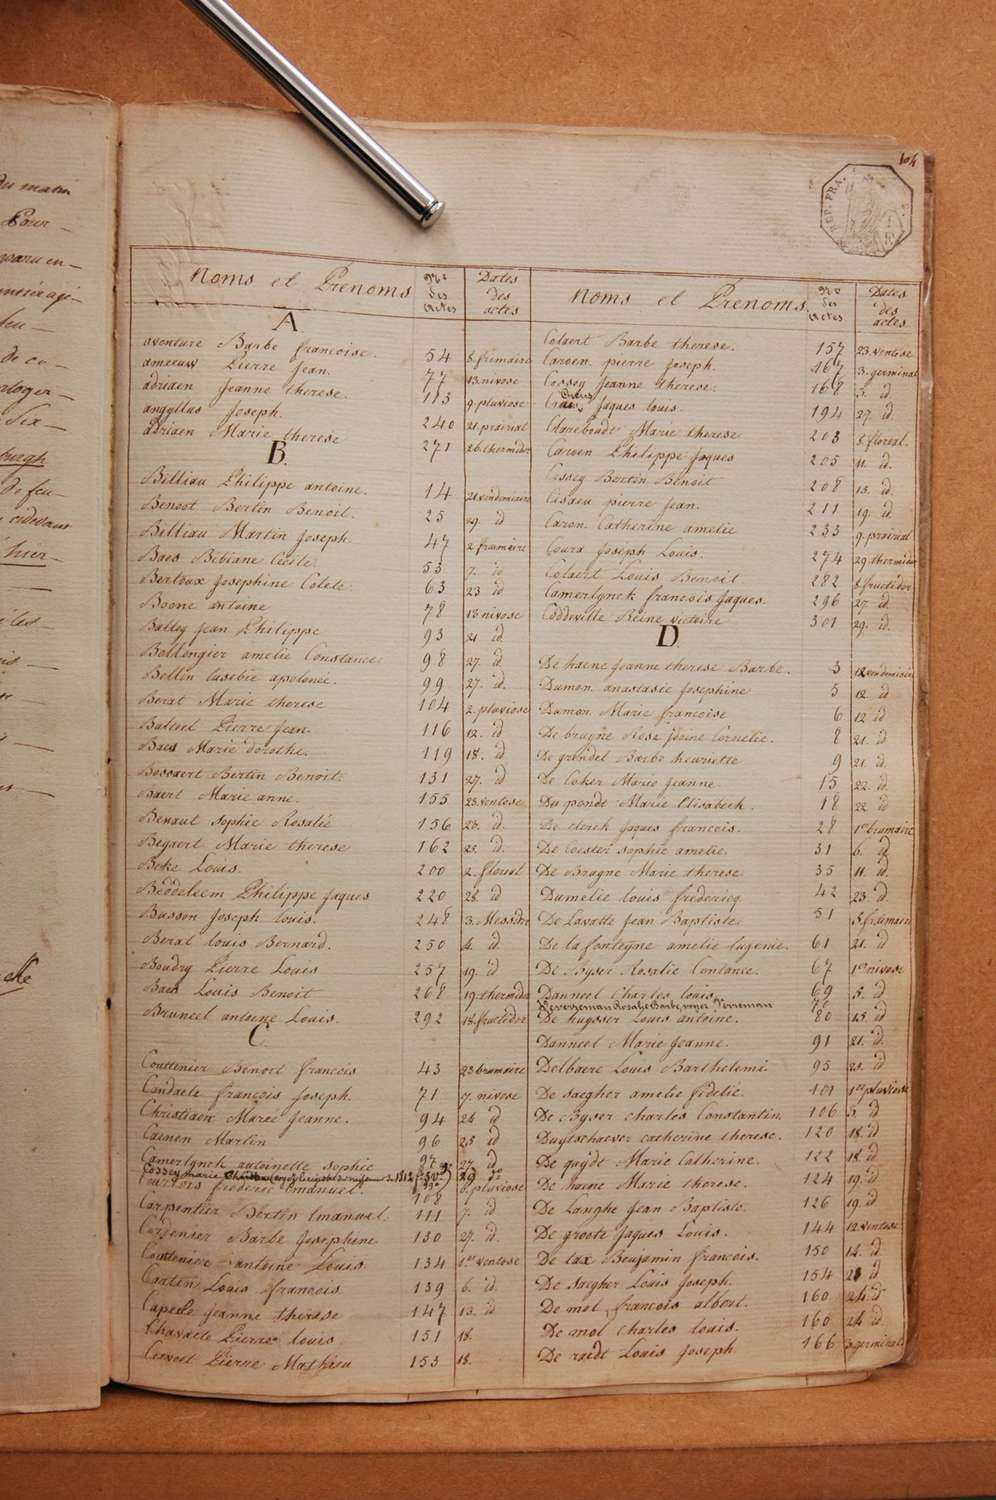 104
REP. FRA.
Noms et Prenoms
Nos des Actes
Dates des actes
A
aventure Barbe francoise. 54 8. frimaire
ameeuw Pierre Jean. 77 13. nivose
adriaen Jeanne therese. 113 9. pluviose
angyllus Joseph. 240 21. prairial
adriaen Marie therese 271 26. thermidor
B.
Billiau Philippe antoine. 14 21 vendemiaire
Benoot Bertin Benoit. 25 29. id
Billiau Martin Joseph 47 2 frimaire
Baes Bibiane Cecile 53 7. id
Bertoux Josephine Colete. 63 23 id
Boone antoine 78 13. nivose
Balley Jean Philippe 93 21 id.
Bollengier amelie Constance 98 27. id.
Bellin Eusebie apolonie. 99 27. id.
Berat Marie therese 104 2. pluviose
Bateel Pierre Jean. 116 12. id
Baes Marie dorothe. 119 18. id
Bossaert Bertin Benoit. 131 27. id
Baert Marie anne. 155 23. ventose
Benaut Sophie Rosalie 156 23. id.
Begaert Marie therese 162 25. id.
Beke Louis. 200 2. floreal
Beddeleem Philippe Jaques 220 28. id
Busson Joseph louis. 248 3. Messidor
Berat louis Bernard. 250 4. id.
Boudry Pierre Louis 257 19. id
Baes Louis Benoit 268 19. thermidor
Bruneel antoine Louis. 292 18. fructidor
C
Couttenier Benoit francois 43 23 brumaire
Candaele françois Joseph. 71 7. nivose
Christiaen Marie Jeanne. 94 24 id
Caenen Martin 96 25 id
Camerlynck antoinette sophie 97 27. id
Cossey marie
Courtois frederic Emanuel. 108 5. pluviose
Carpentier Bertin Emanuel. 111 7. id.
Corpenier Barbe Josephine 130 27. id.
Couttenier antoine Louis 134 1er ventose
Carton Louis françois 139 6. id.
Capelle Jeanne therese 147 13. id
Chavaete Pierre louis 151 18.
Cervoet Pierre Mathieu 153 18.
Noms et Prenoms.
Nos des Actes
Dates des actes.
Colaert Barbe therese. 157 23. ventose
Carven pierre Joseph. 167 3. germinal
Cossey Jeanne therese. 168 5. id
Jaques louis. 194 27. id
Clareboudt Marie therese 203 8. floreal.
Carven Philippe Jaques 205 11. id.
Cossey Bertin Benoit 208 13. id.
Cisaeu pierre Jean. 211 19. id.
Caron Catherine amelie 233 9. prairial
Coura Joseph Louis. 274 29. thermidor
Colaert Louis Benoit 282 8. fructidor
Camerlynck francois Jaques. 296 27. id.
Coddeville Reine victoire 301 29. id.
D.
De haene Jeanne therese Barbe. 3 12. vendemiaire
Dumon anastasie Josephine 5 12 id
Dumon Marie francoise 6 12 id
De bruyne Rose Jeanne Cornelie. 8 21. id
De grendel Barbe henriette 9 21. id.
De Coker Marie Jeanne. 15 22. id
Du pondt Marie Elisabeth. 18 22. id
De clerck Jaques francois. 28 1er brumaire
De Coester Sophie amelie. 31 6. id
De Bruyne Marie therese. 35 11. id.
Dumelie louis fredericq 42 23. id
De Lavatte Jean Baptiste. 51 5. frimaire
De la fonteyne amelie Eugenie. 61 21. id
De Byser Rosalie Constance. 67 1er nivose
Danneel Charles louis 69 5. id
De huysser Louis antoine. 80 15. id
Danneel Marie Jeanne. 91 21. id.
Delbaere Louis Barthelemi 95 25. id
De saegher amelie fidelie. 101 1er pluviose
De Byser Charles Constantin. 106 5. id
Duytschaever catherine therese. 120 18. id
De guydt Marie Catherine. 122 18. id
De haene Marie therese. 124 19. id
De Langhe Jean Baptiste. 126 19. id
De groote Jaques Louis. 144 12. ventose
De tax Benjamin francois. 150 14. id
De Saegher Louis Joseph. 154 23 id
De mol francois albert. 160 24. id
De mol Charles louis. 160 24. id
De raedt Louis Joseph 166 3. germinal